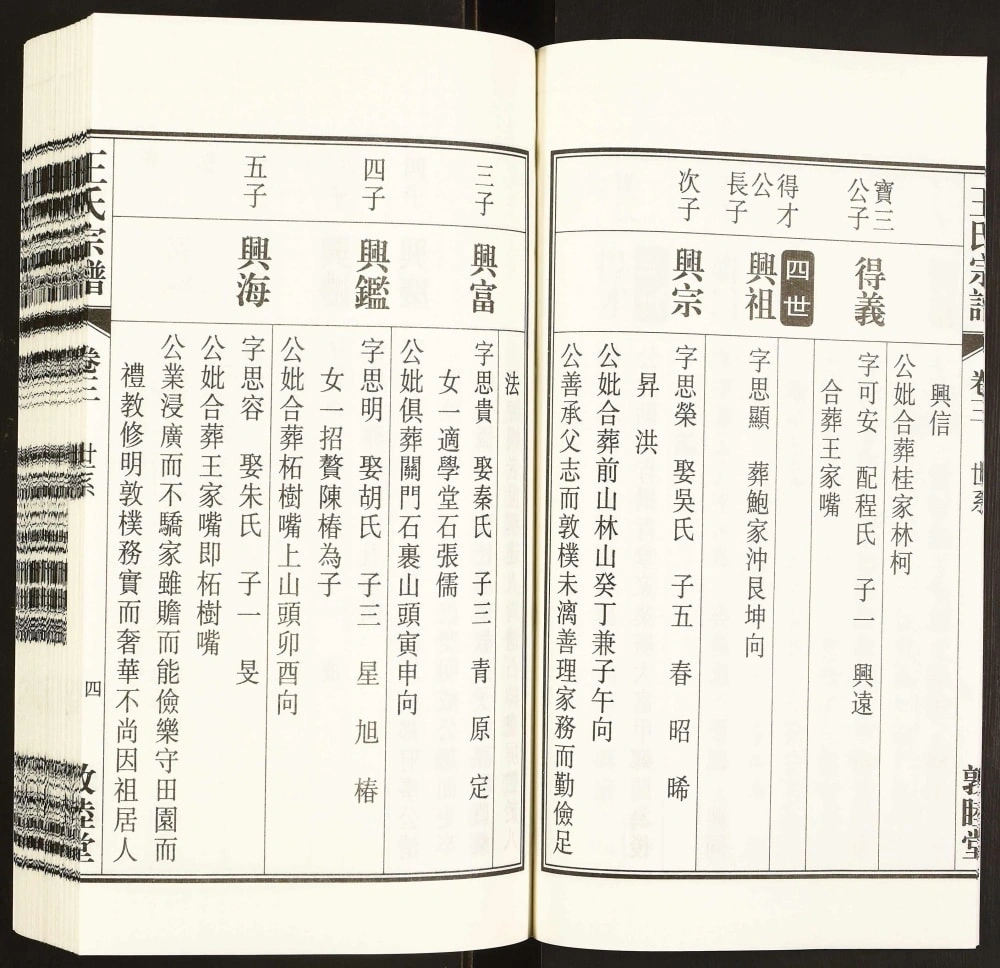 王氏宗譜 卷三 世系 敦睦堂
興信
公妣合葬桂家林柯
寶三
公子
得義
字可安 配程氏 子一 興遠
合葬王家嘴
四世
得才
公
長子
興祖
字思顯 葬鮑家沖艮坤向
次子
興宗
字思榮 娶吳氏 子五 春 昭 晞
昇 洪
公妣合葬前山林山癸丁兼子午向
公善承父志而敦樸未漓善理家務而勤儉足
法
三子
興富
字思貴 娶秦氏 子三 青 原 定
女一適學堂石張儒
公妣俱葬關門石裹山頭寅申向
四子
興鑑
字思明 娶胡氏 子三 星 旭 椿
女一招贅陳椿為子
公妣合葬柘樹嘴上山頭卯酉向
五子
興海
字思容 娶朱氏 子一 旻
公妣合葬王家嘴即柘樹嘴
公業浸廣而不驕家雖贍而能儉樂守田園而
禮教修明敦樸務實而奢華不尚因祖居人
王氏宗譜 卷三 世系 四 敦睦堂